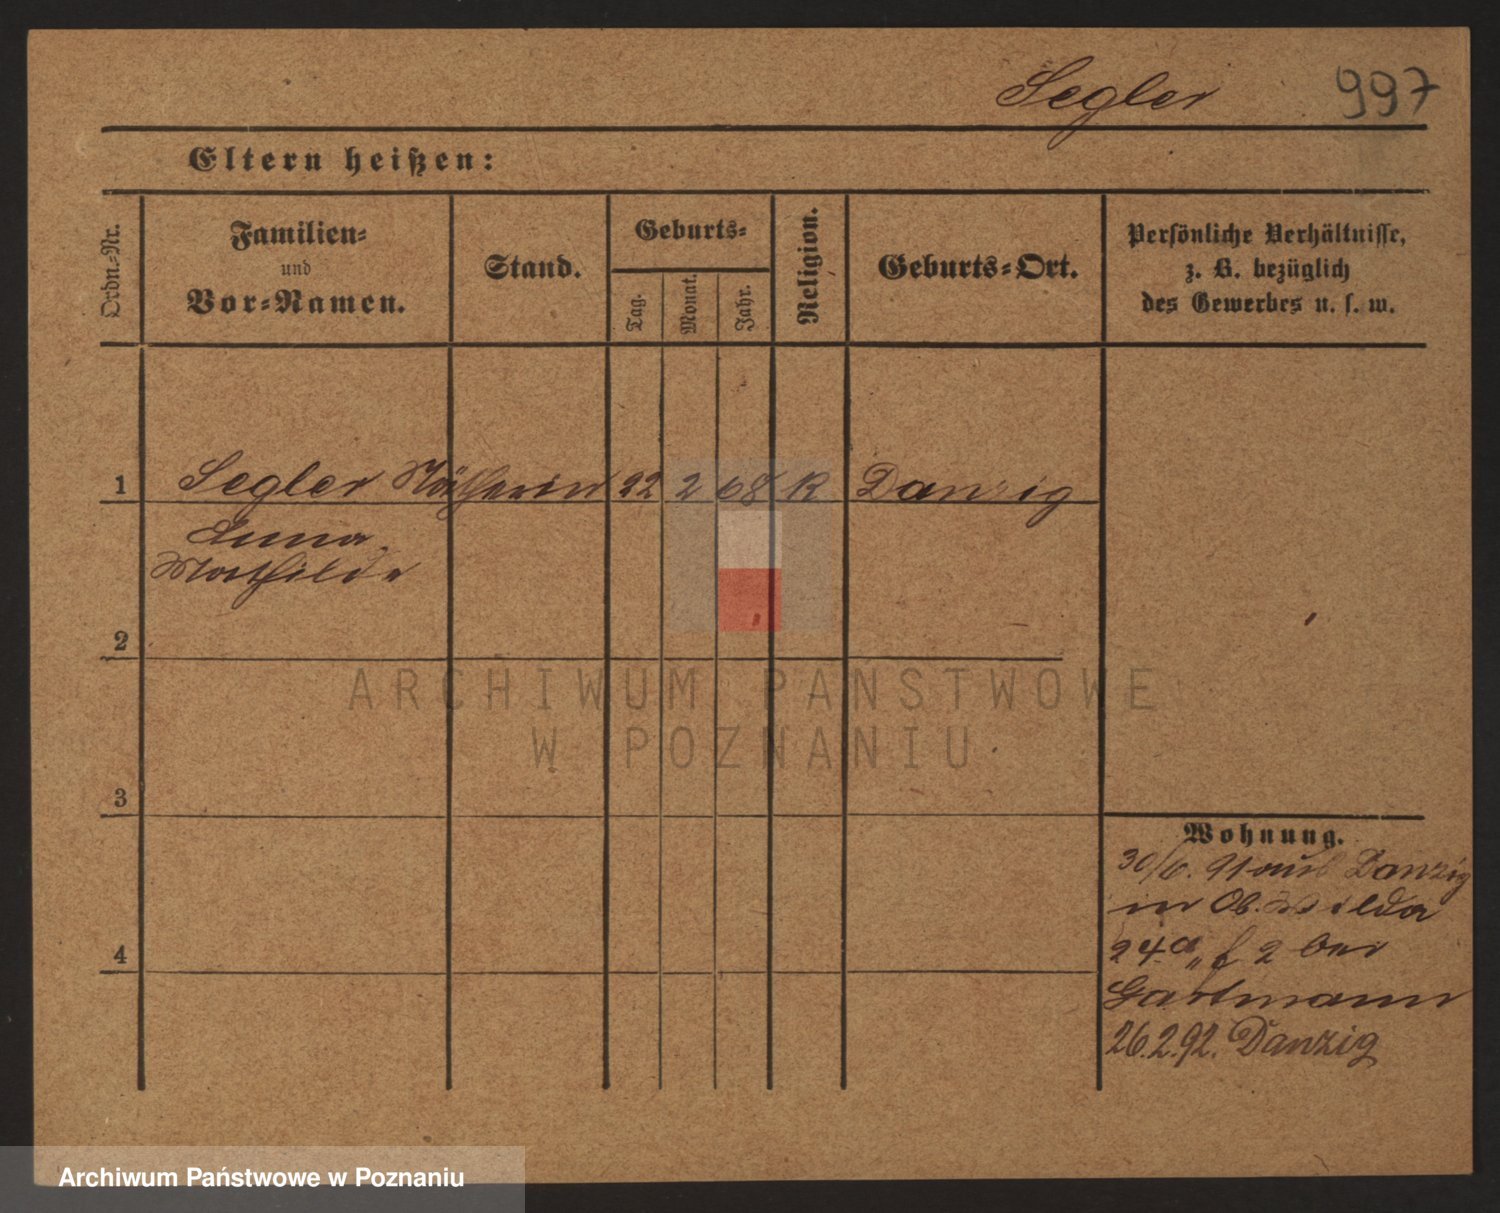 Segler 997
Eltern heißen:
Ordn.-Nr.
Familien-
und
Vor-Namen.
Stand.
Geburts-
Tag.
Monat.
Jahr.
Religion.
Geburts-Ort.
Persönliche Verhältnisse,
z. B. bezüglich
des Gewerbes u. s. w.
1 Segler Nätherin 22 2 68 R Danzig
Anna
Mathilde
2
3
4
Wohnung.
30/6. 91 aus Danzig
in Ob. Wilda
24a 2 bei
Gartmann
26.2.92. Danzig
ARCHIWUM PAŃSTWOWE
W POZNANIU
Archiwum Państwowe w Poznaniu